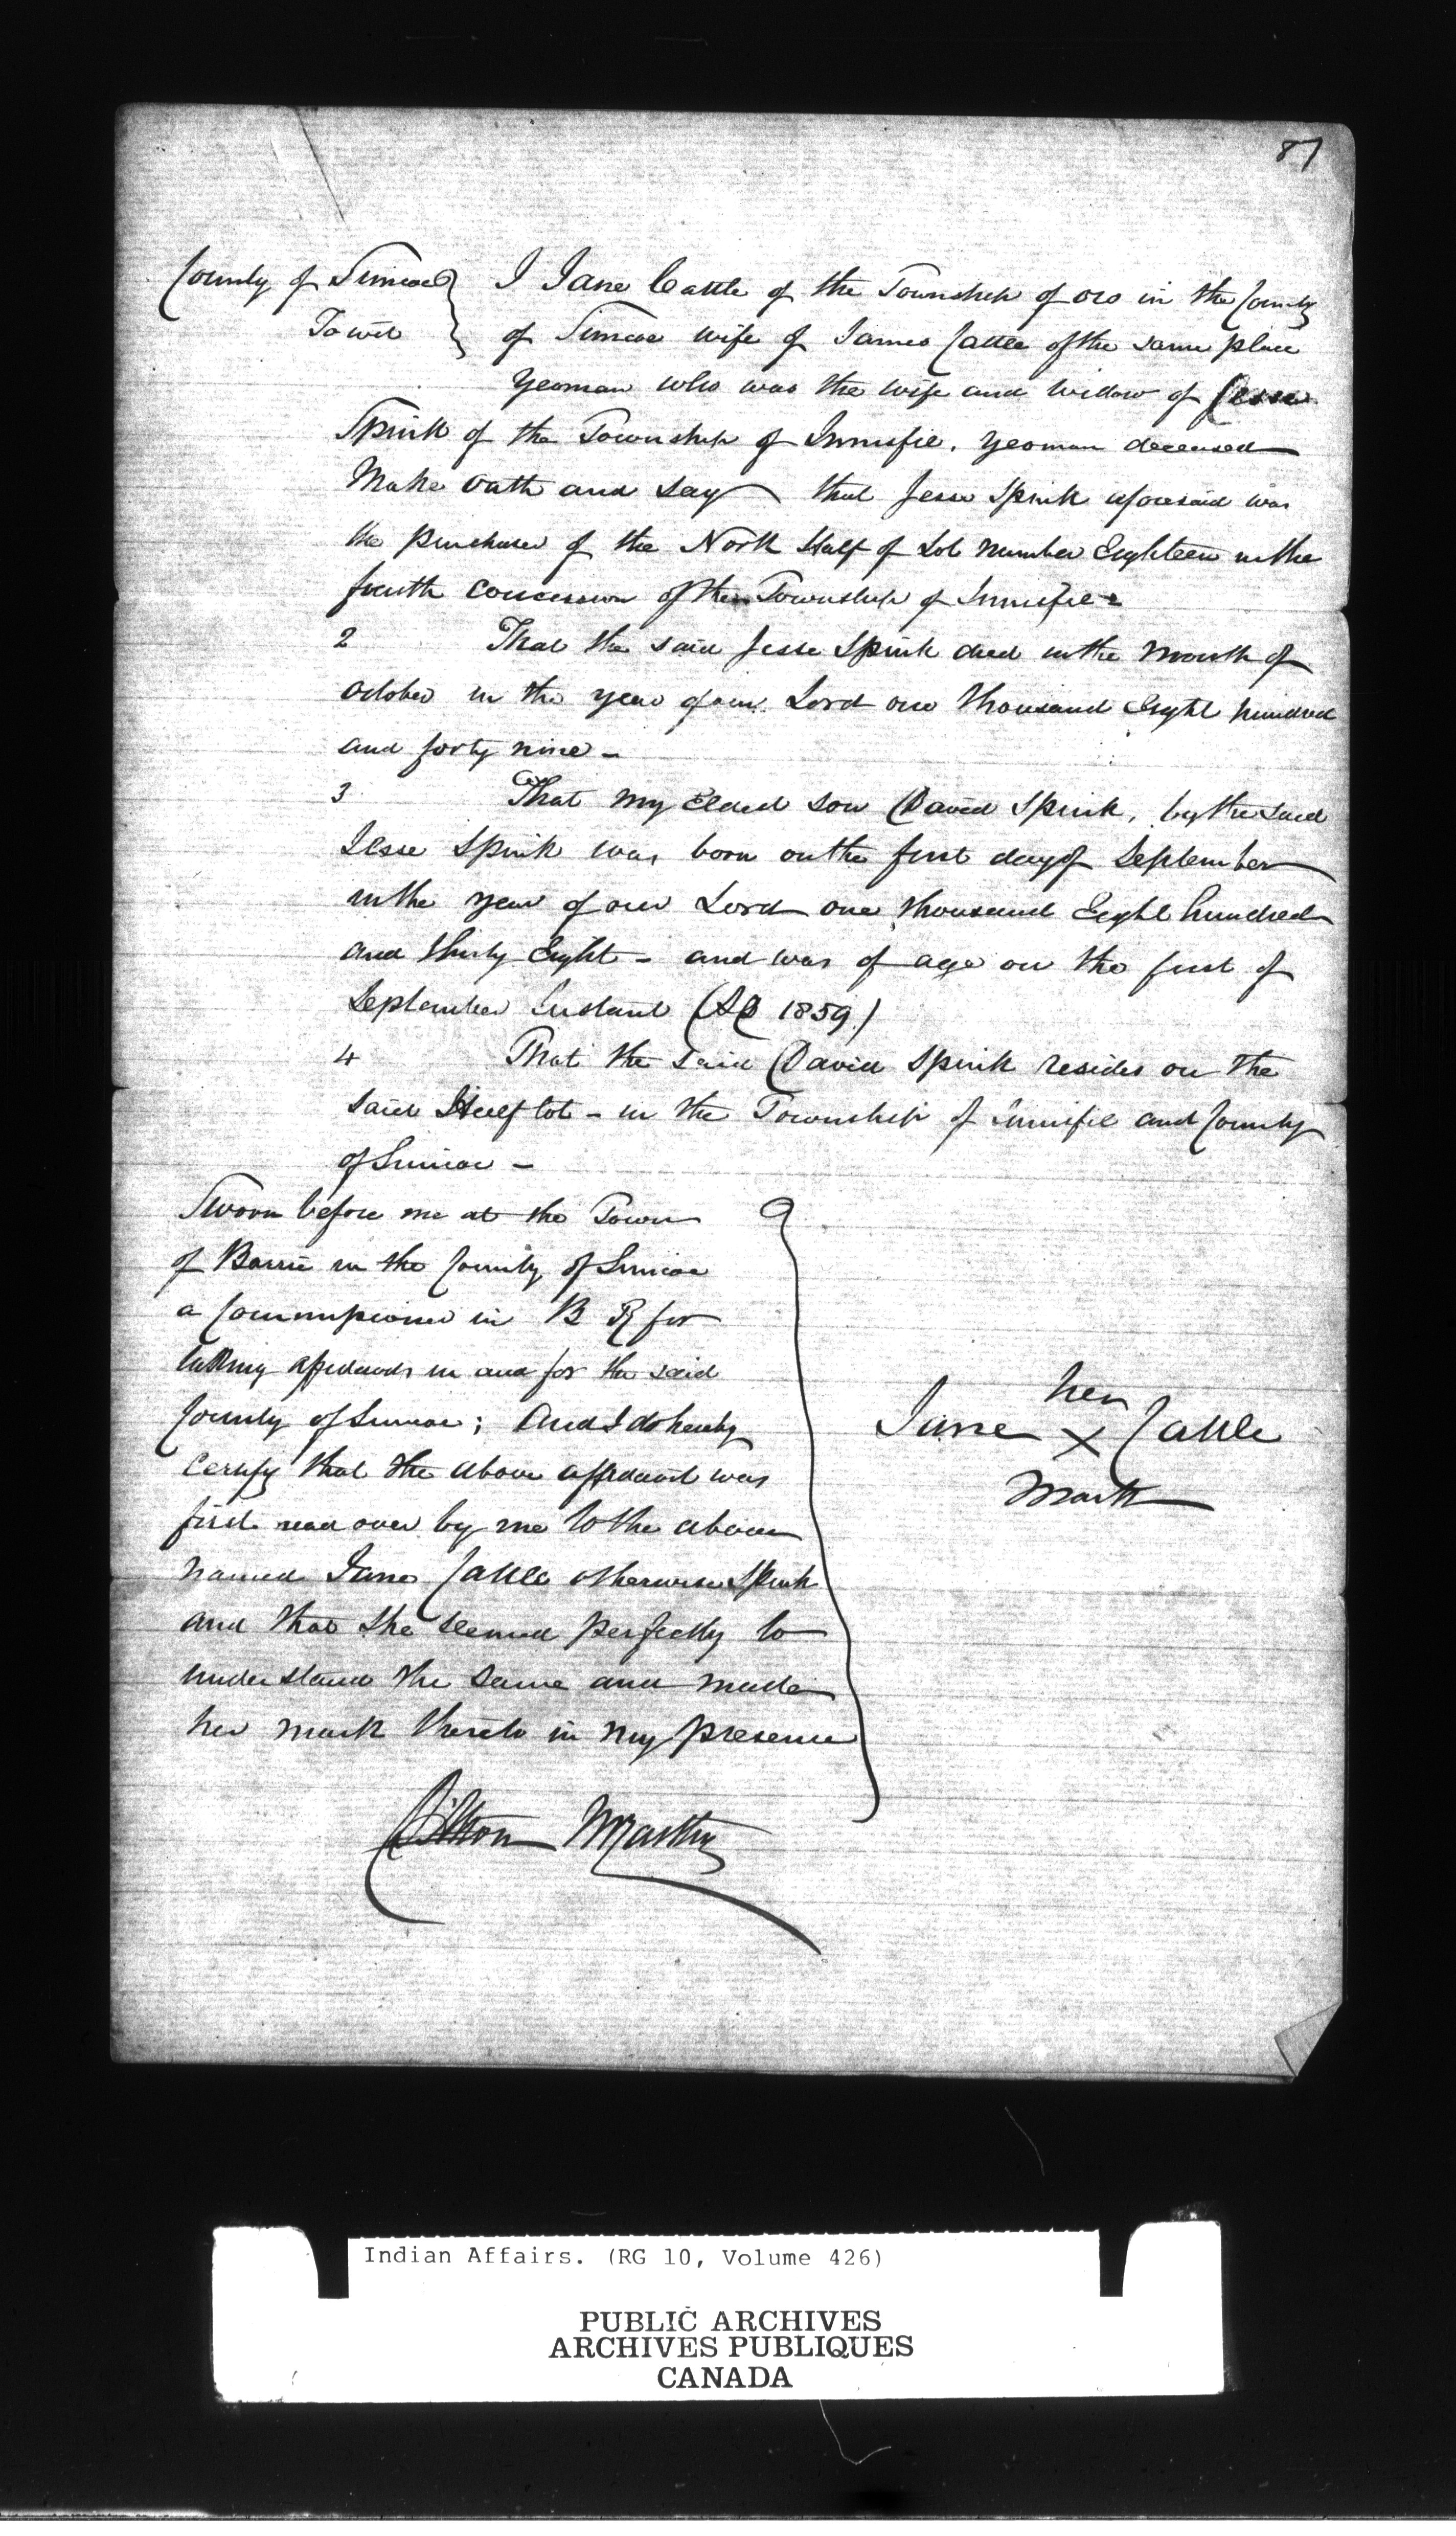 87
County of Simcoe } I Jane Cattle of the Township of oro in the County
To wit } of Simcoe wife of James Cattle of the same place
Yeoman who was the wife and widow of Jesse
Spink of the Township of Innisfil, yeoman deceased
Make oath and say that Jesse Spink aforesaid was
the purchaser of the North Half of Lot number Eighteen in the
fourth concession of the Township of Innisfil -
2 That the said Jesse Spink died in the month of
October in the year of our Lord one thousand Eight hundred
and forty nine -
3 That my Eldest son David Spink, by the said
Jesse Spink was born on the first day of September
in the year of our Lord one thousand Eight hundred
and thirty Eight - and was of age on the first of
September Instant (AD 1859)
4 That the said David Spink resides on the
said Half lot - in the Township of Innisfil and County
of Simcoe -
Sworn before me at the Town
of Barrie in the County of Simcoe
a Commissioner in B R for
taking affidavits in and for the said
County of Simcoe; And I do hereby
certify that the above affidavit was
first read over by me to the above
named Jane Cattle otherwise Spink
and that she seemed perfectly to
understand the same and made
her mark thereto in my presence
her
Jane X Cattle
mark
Indian Affairs. (RG 10, Volume 426)
PUBLIC ARCHIVES
ARCHIVES PUBLIQUES
CANADA